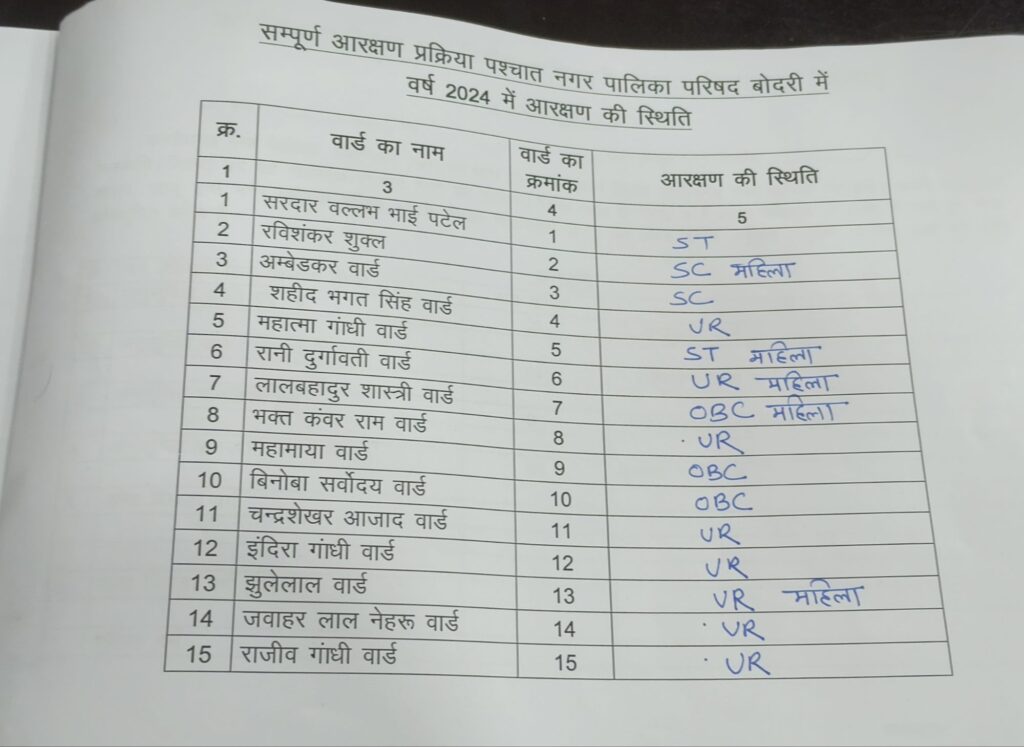 सम्पूर्ण आरक्षण प्रक्रिया पश्चात नगर पालिका परिषद बोदरी में
वर्ष 2024 में आरक्षण की स्थिति
क्र. वार्ड का नाम वार्ड का क्रमांक आरक्षण की स्थिति
1 3 4 5
1 सरदार वल्लभ भाई पटेल 1 ST
2 रविशंकर शुक्ल 2 SC महिला
3 अम्बेडकर वार्ड 3 SC
4 शहीद भगत सिंह वार्ड 4 UR
5 महात्मा गांधी वार्ड 5 ST महिला
6 रानी दुर्गावती वार्ड 6 UR महिला
7 लालबहादुर शास्त्री वार्ड 7 OBC महिला
8 भक्त कंवर राम वार्ड 8 UR
9 महामाया वार्ड 9 OBC
10 बिनोबा सर्वोदय वार्ड 10 OBC
11 चन्द्रशेखर आजाद वार्ड 11 UR
12 इंदिरा गांधी वार्ड 12 UR
13 झुलेलाल वार्ड 13 UR महिला
14 जवाहर लाल नेहरू वार्ड 14 UR
15 राजीव गांधी वार्ड 15 UR